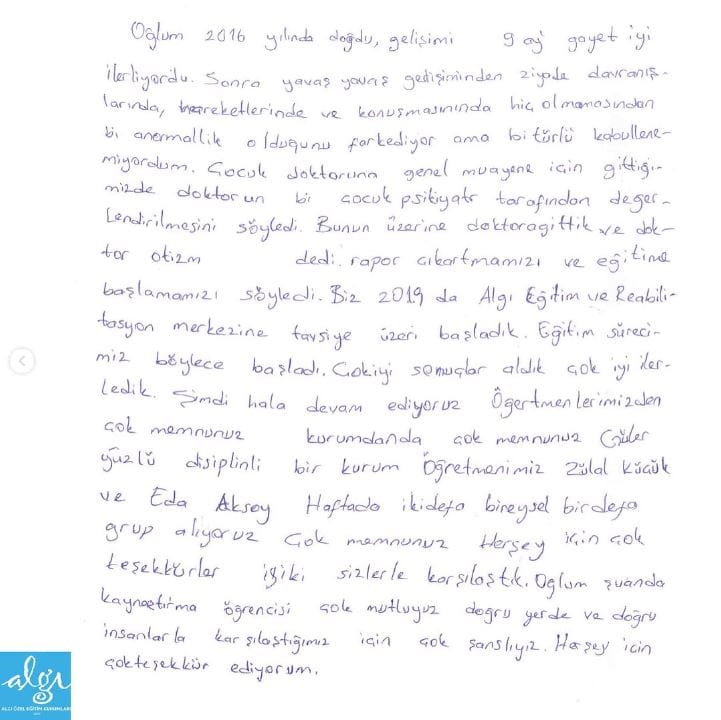 Oğlum 2016 yılında doğdu, gelişimi 9 ay gayet iyi
ilerliyordu. Sonra yavaş yavaş gedişiminden ziyade davranış-
larında, hareketlerinde ve konuşmasınında hiç olmamasından
bi anormallik olduğunu farkediyor ama bi türlü kabullene-
miyordum. Çocuk doktoruna genel muayene için gittiği-
mizde doktorun bi çocuk psikiyatr tarafından değer-
lendirilmesini söyledi. Bunun üzerine doktoragittik ve dok-
tor otizm dedi. rapor çıkartmamızı ve eğitime
başlamamızı söyledi. Biz 2019 da Algı Eğitim ve Reabili-
tasyon merkezine tavsiye üzeri başladık. Eğitim süreci-
miz böylece başladı. Çokiyi sonuçlar aldık çok iyi iler-
ledik. Şimdi hala devam ediyoruz Ögertmenlerimizden
çok memnunuz kurumdanda çok memnunuz Güler
yüzlü disiplinli bir kurum Öğretmenimiz Zülal Küçük
ve Eda Aksoy Haftada ikidefa bireysel birdefa
grup alıyoruz Çok memnunuz Herşey için çok
teşekkürler işiki sizlerle karşılaştık. Oğlum şuanda
kaynaştırma öğrencisi çok mutluyuz doğru yerde ve doğru
insanlarla karşılaştığımız için çok şanslıyız. Herşey için
çokteşekkür ediyorum.
algı
ALGI ÖZEL EĞİTİM KURUMLARI